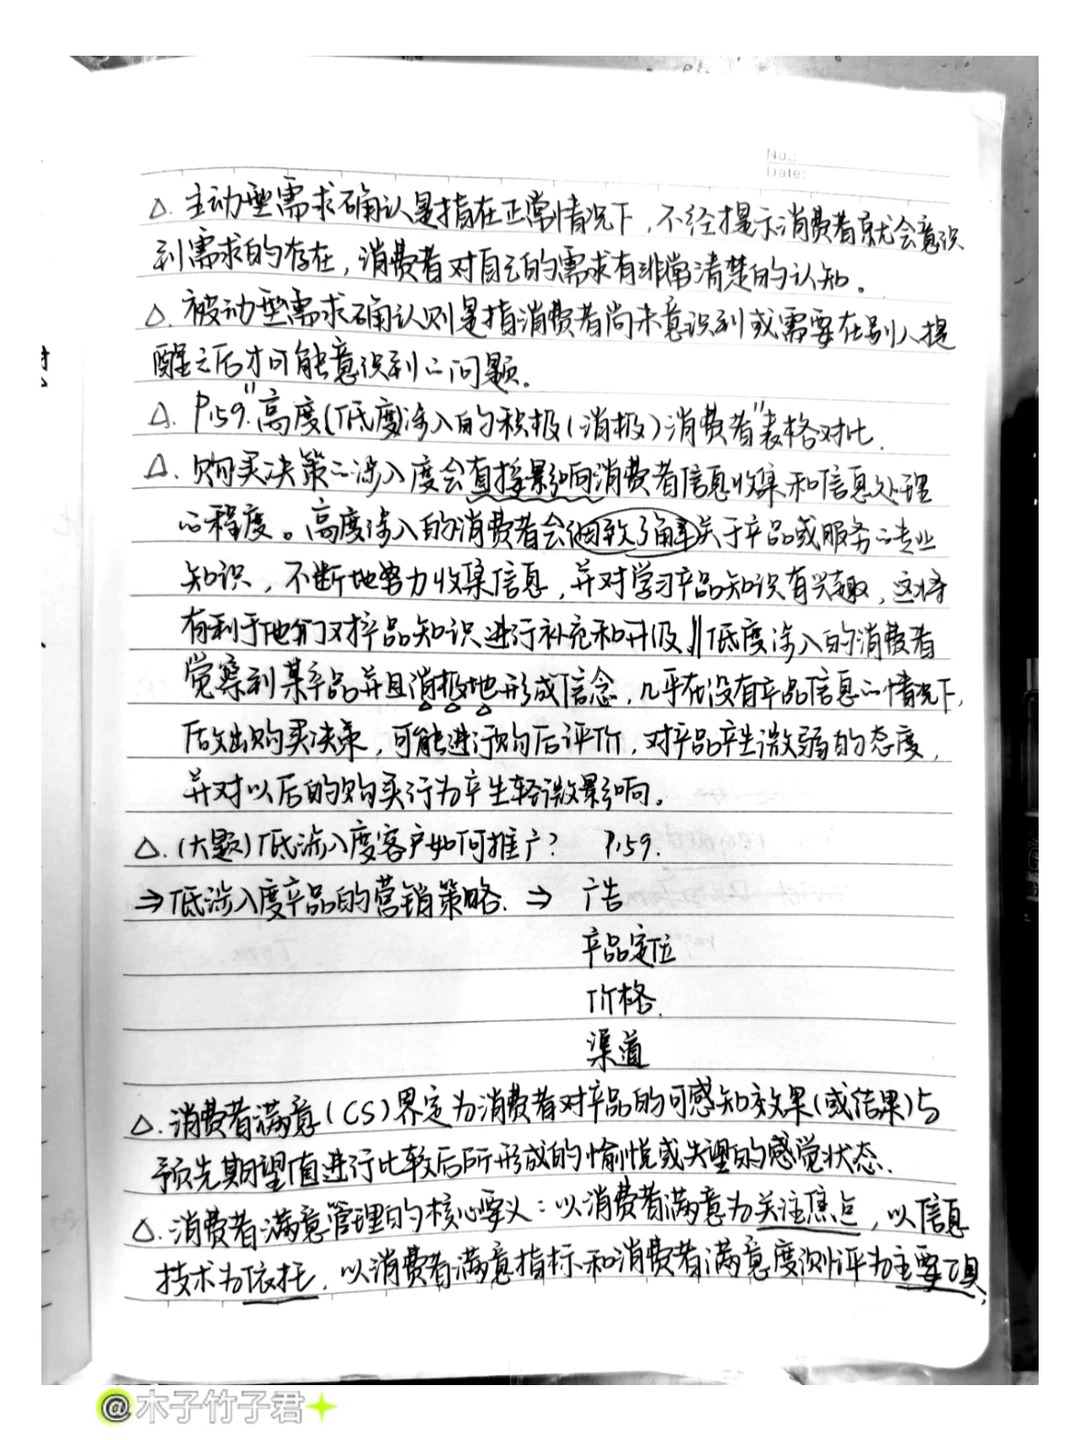 No.:
Date:
△. 主动型需求确认是指在正常情况下，不经提示消费者就会意识
到需求的存在，消费者对自己的需求有非常清楚的认知。
△. 被动型需求确认则是指消费者尚未意识到或需要在别人提
醒之后才可能意识到の问题.
△. P.59."高度(低度)涉入的积极(消极)消费者"表格对比.
△. 购买决策の涉入度会直接影响消费者信息收集和信息处理
の程度。高度涉入的消费者会细致了解关于产品或服务の专业
知识，不断地努力收集信息，并对学习产品知识有兴趣，这将
有利于他们对产品知识进行补充和升级 // 低度涉入的消费者
觉察到某产品并且消极地形成信念，几乎在没有产品信息の情况下，
后做出购买决策，可能进行购后评价，对产品产生微弱的态度，
并对以后的购买行为产生轻微影响。
△. (大题)低涉入度客户如何推广? P.59.
⇒低涉入度产品的营销策略. ⇒ 广告
产品定位
价格.
渠道
△. 消费者满意(CS)界定为消费者对产品的可感知效果(或结果)与
预先期望值进行比较后所形成的愉悦或失望的感觉状态.
△. 消费者满意管理的核心要义：以消费者满意为关注焦点，以信息
技术为依托，以消费者满意指标和消费者满意度测评为主要工具，
@木子竹子君